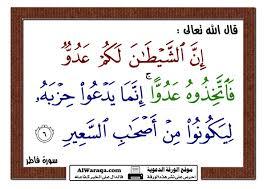 قال الله تعالى :
إِنَّ الشَّيْطَـٰنَ لَكُمْ عَدُوٌّ
فَاتَّخِذُوهُ عَدُوًّا ۚ إِنَّمَا يَدْعُوا۟ حِزْبَهُۥ
لِيَكُونُوا۟ مِنْ أَصْحَـٰبِ السَّعِيرِ ٦
سورة فاطر
موقع الورقة الدعوية
AlWaraqa.com